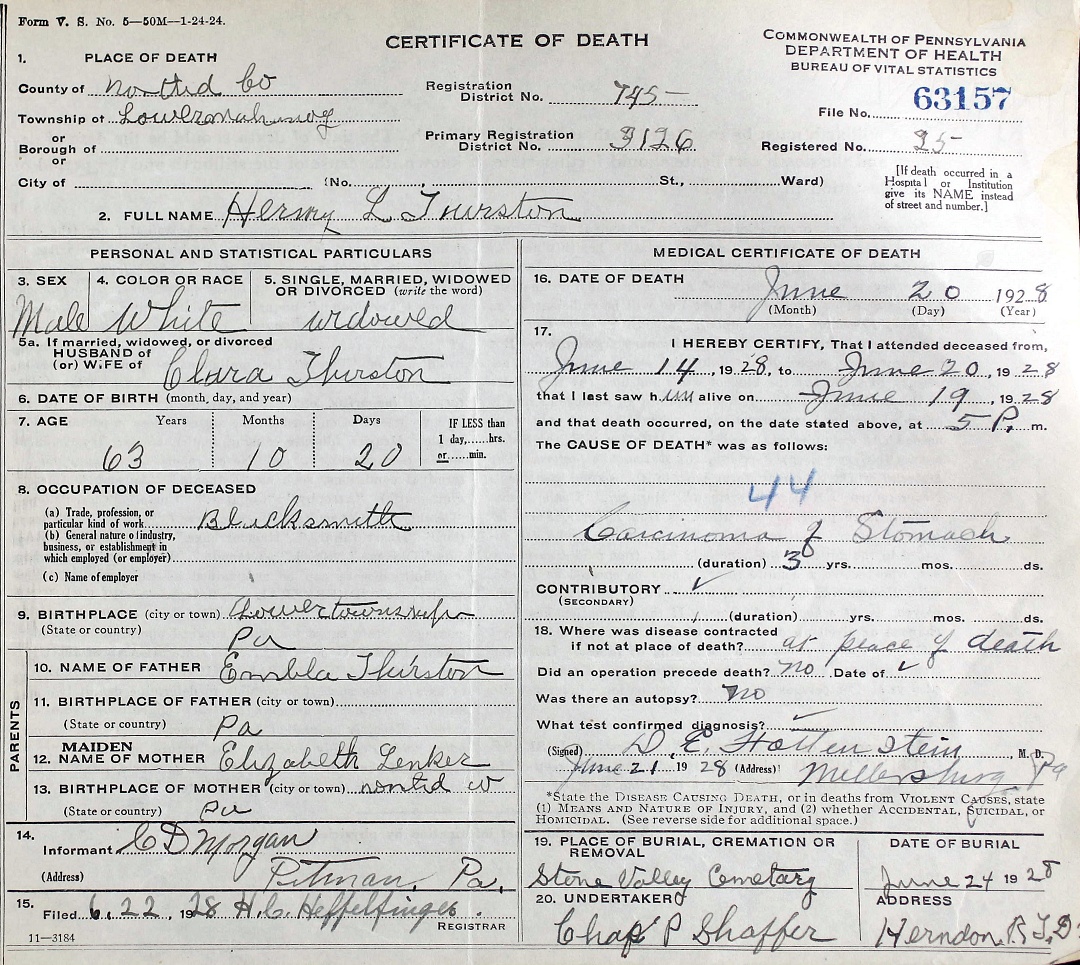 Form V. S. No. 5—50M—1-24-24.
CERTIFICATE OF DEATH
COMMONWEALTH OF PENNSYLVANIA
DEPARTMENT OF HEALTH
BUREAU OF VITAL STATISTICS
1. PLACE OF DEATH
County of Northd Co
Registration District No. 745
File No. 63157
Township of
or
Borough of
Primary Registration District No. 3126
Registered No. 25
or
City of (No. St., Ward)
[If death occurred in a Hospital or Institution give its NAME instead of street and number.]
2. FULL NAME Henry L Thurston
PERSONAL AND STATISTICAL PARTICULARS
3. SEX Male
4. COLOR OR RACE White
5. SINGLE, MARRIED, WIDOWED OR DIVORCED (write the word) widowed
5a. If married, widowed, or divorced
HUSBAND of
(or) WIFE of Clara Thurston
6. DATE OF BIRTH (month, day, and year)
7. AGE Years Months Days IF LESS than 1 day,......hrs. or......min.
63 10 20
8. OCCUPATION OF DECEASED
(a) Trade, profession, or particular kind of work Blacksmith
(b) General nature of industry, business, or establishment in which employed (or employer)
(c) Name of employer
9. BIRTHPLACE (city or town) Lower township
(State or country) Pa
PARENTS
10. NAME OF FATHER Thurston
11. BIRTHPLACE OF FATHER (city or town)
(State or country) Pa
12. MAIDEN NAME OF MOTHER Elizabeth Lenker
13. BIRTHPLACE OF MOTHER (city or town) northd co
(State or country) Pa
14. Informant C D Morgan
(Address) Pitman, Pa.
15. Filed 6. 22, 1928 H. C. Heffelfinger.
REGISTRAR
11—3184
MEDICAL CERTIFICATE OF DEATH
16. DATE OF DEATH June 20 1928
(Month) (Day) (Year)
17. I HEREBY CERTIFY, That I attended deceased from,
June 14, 1928, to June 20, 1928
that I last saw him alive on June 19, 1928
and that death occurred, on the date stated above, at 5 P. m.
The CAUSE OF DEATH* was as follows:
44
Carcinoma of Stomach
(duration) 3 yrs. mos. ds.
CONTRIBUTORY
(SECONDARY)
(duration) yrs. mos. ds.
18. Where was disease contracted
if not at place of death? at peace of death
Did an operation precede death? no Date of
Was there an autopsy? no
What test confirmed diagnosis?
(Signed) D. E. Hottenstein M. D.
June 21 1928 (Address) Millersburg Pa
*State the DISEASE CAUSING DEATH, or in deaths from VIOLENT CAUSES, state
(1) MEANS AND NATURE OF INJURY, and (2) whether ACCIDENTAL, SUICIDAL, or
HOMICIDAL. (See reverse side for additional space.)
19. PLACE OF BURIAL, CREMATION OR REMOVAL
DATE OF BURIAL
Stone Valley Cemetary
June 24 1928
20. UNDERTAKER
ADDRESS
Chas P Shaffer
Herndon, R.F.D.